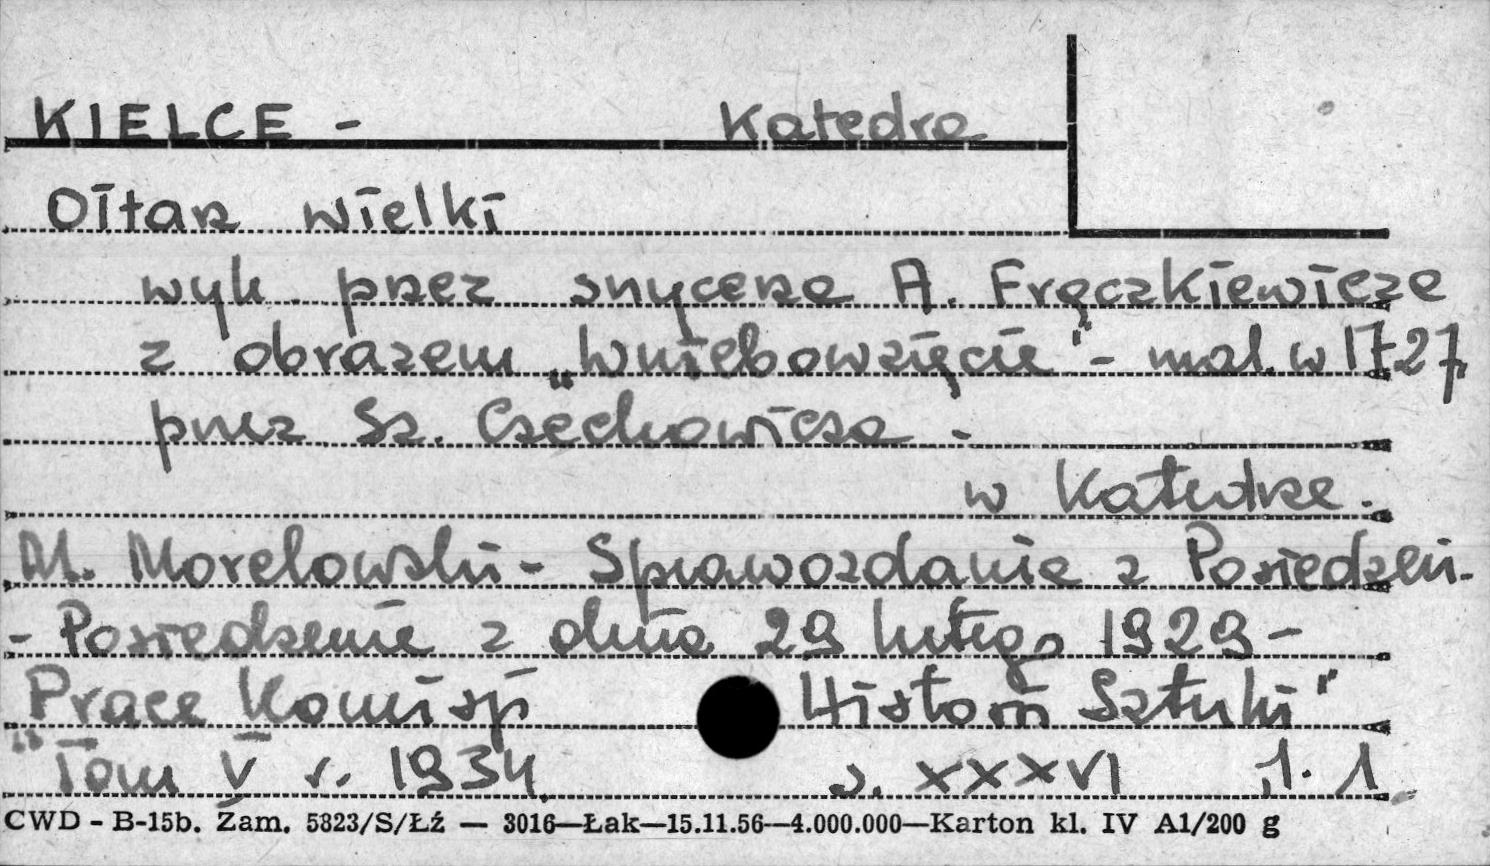 KIELCE - Katedra
Ołtarz Wielki
wyk. przez snycerza A. Frączkiewicza
z obrazem „Wniebowzięcie" - mal. w 1727,
przez Sz. Czechowicza -
w Katedrze.
M. Morelowski - Sprawozdanie z Posiedzeń -
- Posiedzenie z dnia 29 lutego 1929 -
„Prace Komisji Historii Sztuki"
Tom V r. 1934, s. XXXVI
CWD - B-15b. Zam. 5823/S/Łź — 3016—Łak—15.11.56—4.000.000—Karton kl. IV A1/200 g